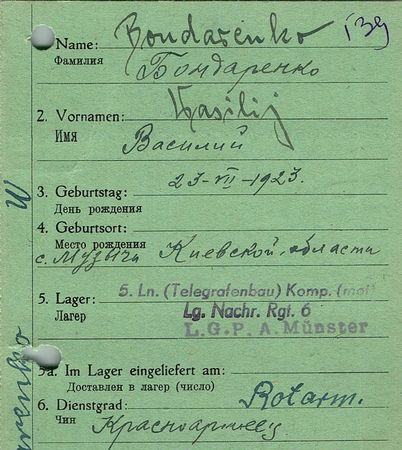 Bondarenko
Name:
Фамилия
Бондаренко
Wasilij
2. Vornamen:
Имя
Василий
23-VII-1923.
3. Geburtstag:
День рождения
4. Geburtsort:
Место рождения
с. Музычи Киевской области
5. Lager:
Лагерь
5. Ln. (Telegrafenbau) Komp. (mot)
Lg. Nachr. Rgt. 6
L.G.P.A. Münster
5a. Im Lager eingeliefert am:
Доставлен в лагер (число)
6. Dienstgrad:
Чин
Rotarm.
Красноармеец